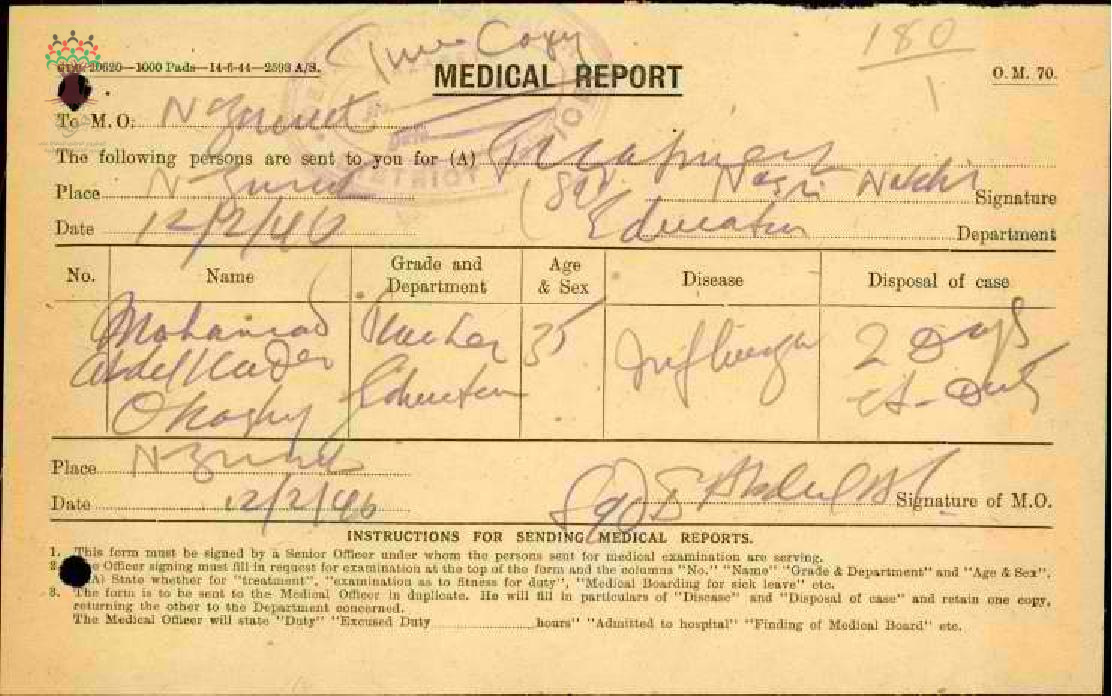 True Copy
180
1
GPB. 20620—1000 Pads—14-6-44—2593 A/S.
MEDICAL REPORT
O. M. 70.
To M. O: N Zureik
The following persons are sent to you for (A) Treatment
Place N Zureik
Signature
Date 12/2/46 Education Department
No. Name Grade and Department Age & Sex Disease Disposal of case
Mohamad Teacher 35 Influenza 2 Days
Abdel Kader Education
Okashy
Place
Date 12/2/46 Signature of M.O.
INSTRUCTIONS FOR SENDING MEDICAL REPORTS.
1. This form must be signed by a Senior Officer under whom the persons sent for medical examination are serving.
2. Officer signing must fill in request for examination at the top of the form and the columns "No." "Name" "Grade & Department" and "Age & Sex".
(A) State whether for "treatment", "examination as to fitness for duty", "Medical Boarding for sick leave" etc.
3. The form is to be sent to the Medical Officer in duplicate. He will fill in particulars of "Disease" and "Disposal of case" and retain one copy,
returning the other to the Department concerned.
The Medical Officer will state "Duty" "Excused Duty ............ hours" "Admitted to hospital" "Finding of Medical Board" etc.